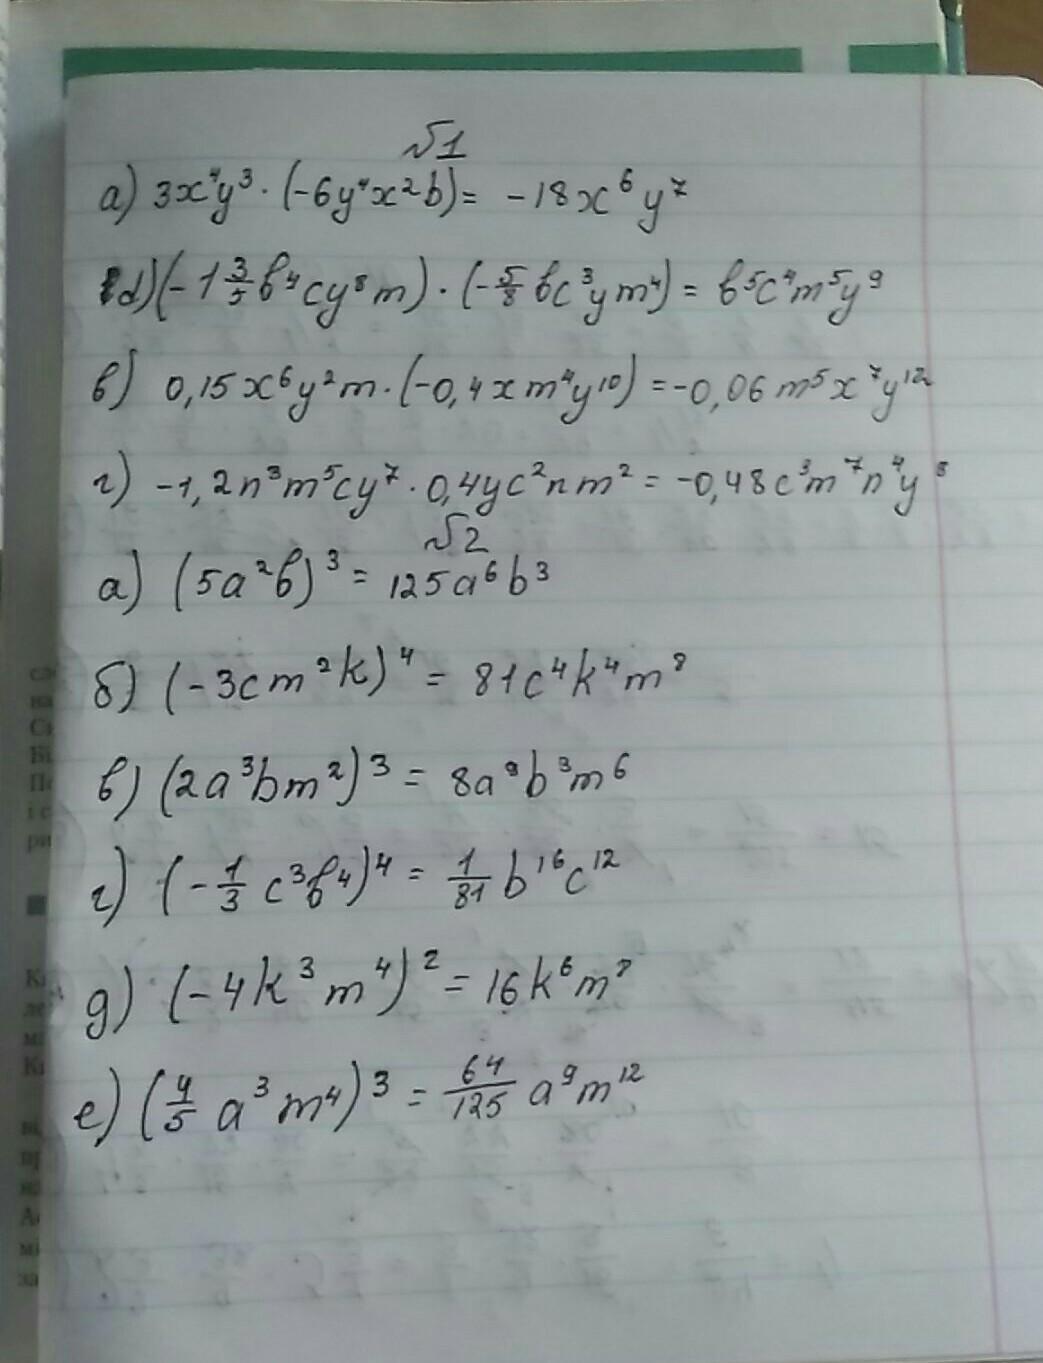 №1
а) 3x⁴y³ · (-6y⁴x²b) = -18x⁶y⁷
d) (-1 3/5 b⁴cy⁸m) · (-5/8 bc³ym⁴) = b⁵c⁴m⁵y⁹
в) 0,15x⁶y²m · (-0,4xm⁴y¹⁰) = -0,06m⁵x⁷y¹²
г) -1,2n³m⁵cy⁷ · 0,4yc²nm² = -0,48c³m⁷n⁴y⁸
№2
а) (5a²b)³ = 125a⁶b³
б) (-3cm²k)⁴ = 81c⁴k⁴m⁸
в) (2a³bm²)³ = 8a⁹b³m⁶
г) (-1/3 c³b⁴)⁴ = 1/81 b¹⁶c¹²
д) (-4k³m⁴)² = 16k⁶m⁸
е) (4/5 a³m⁴)³ = 64/125 a⁹m¹²